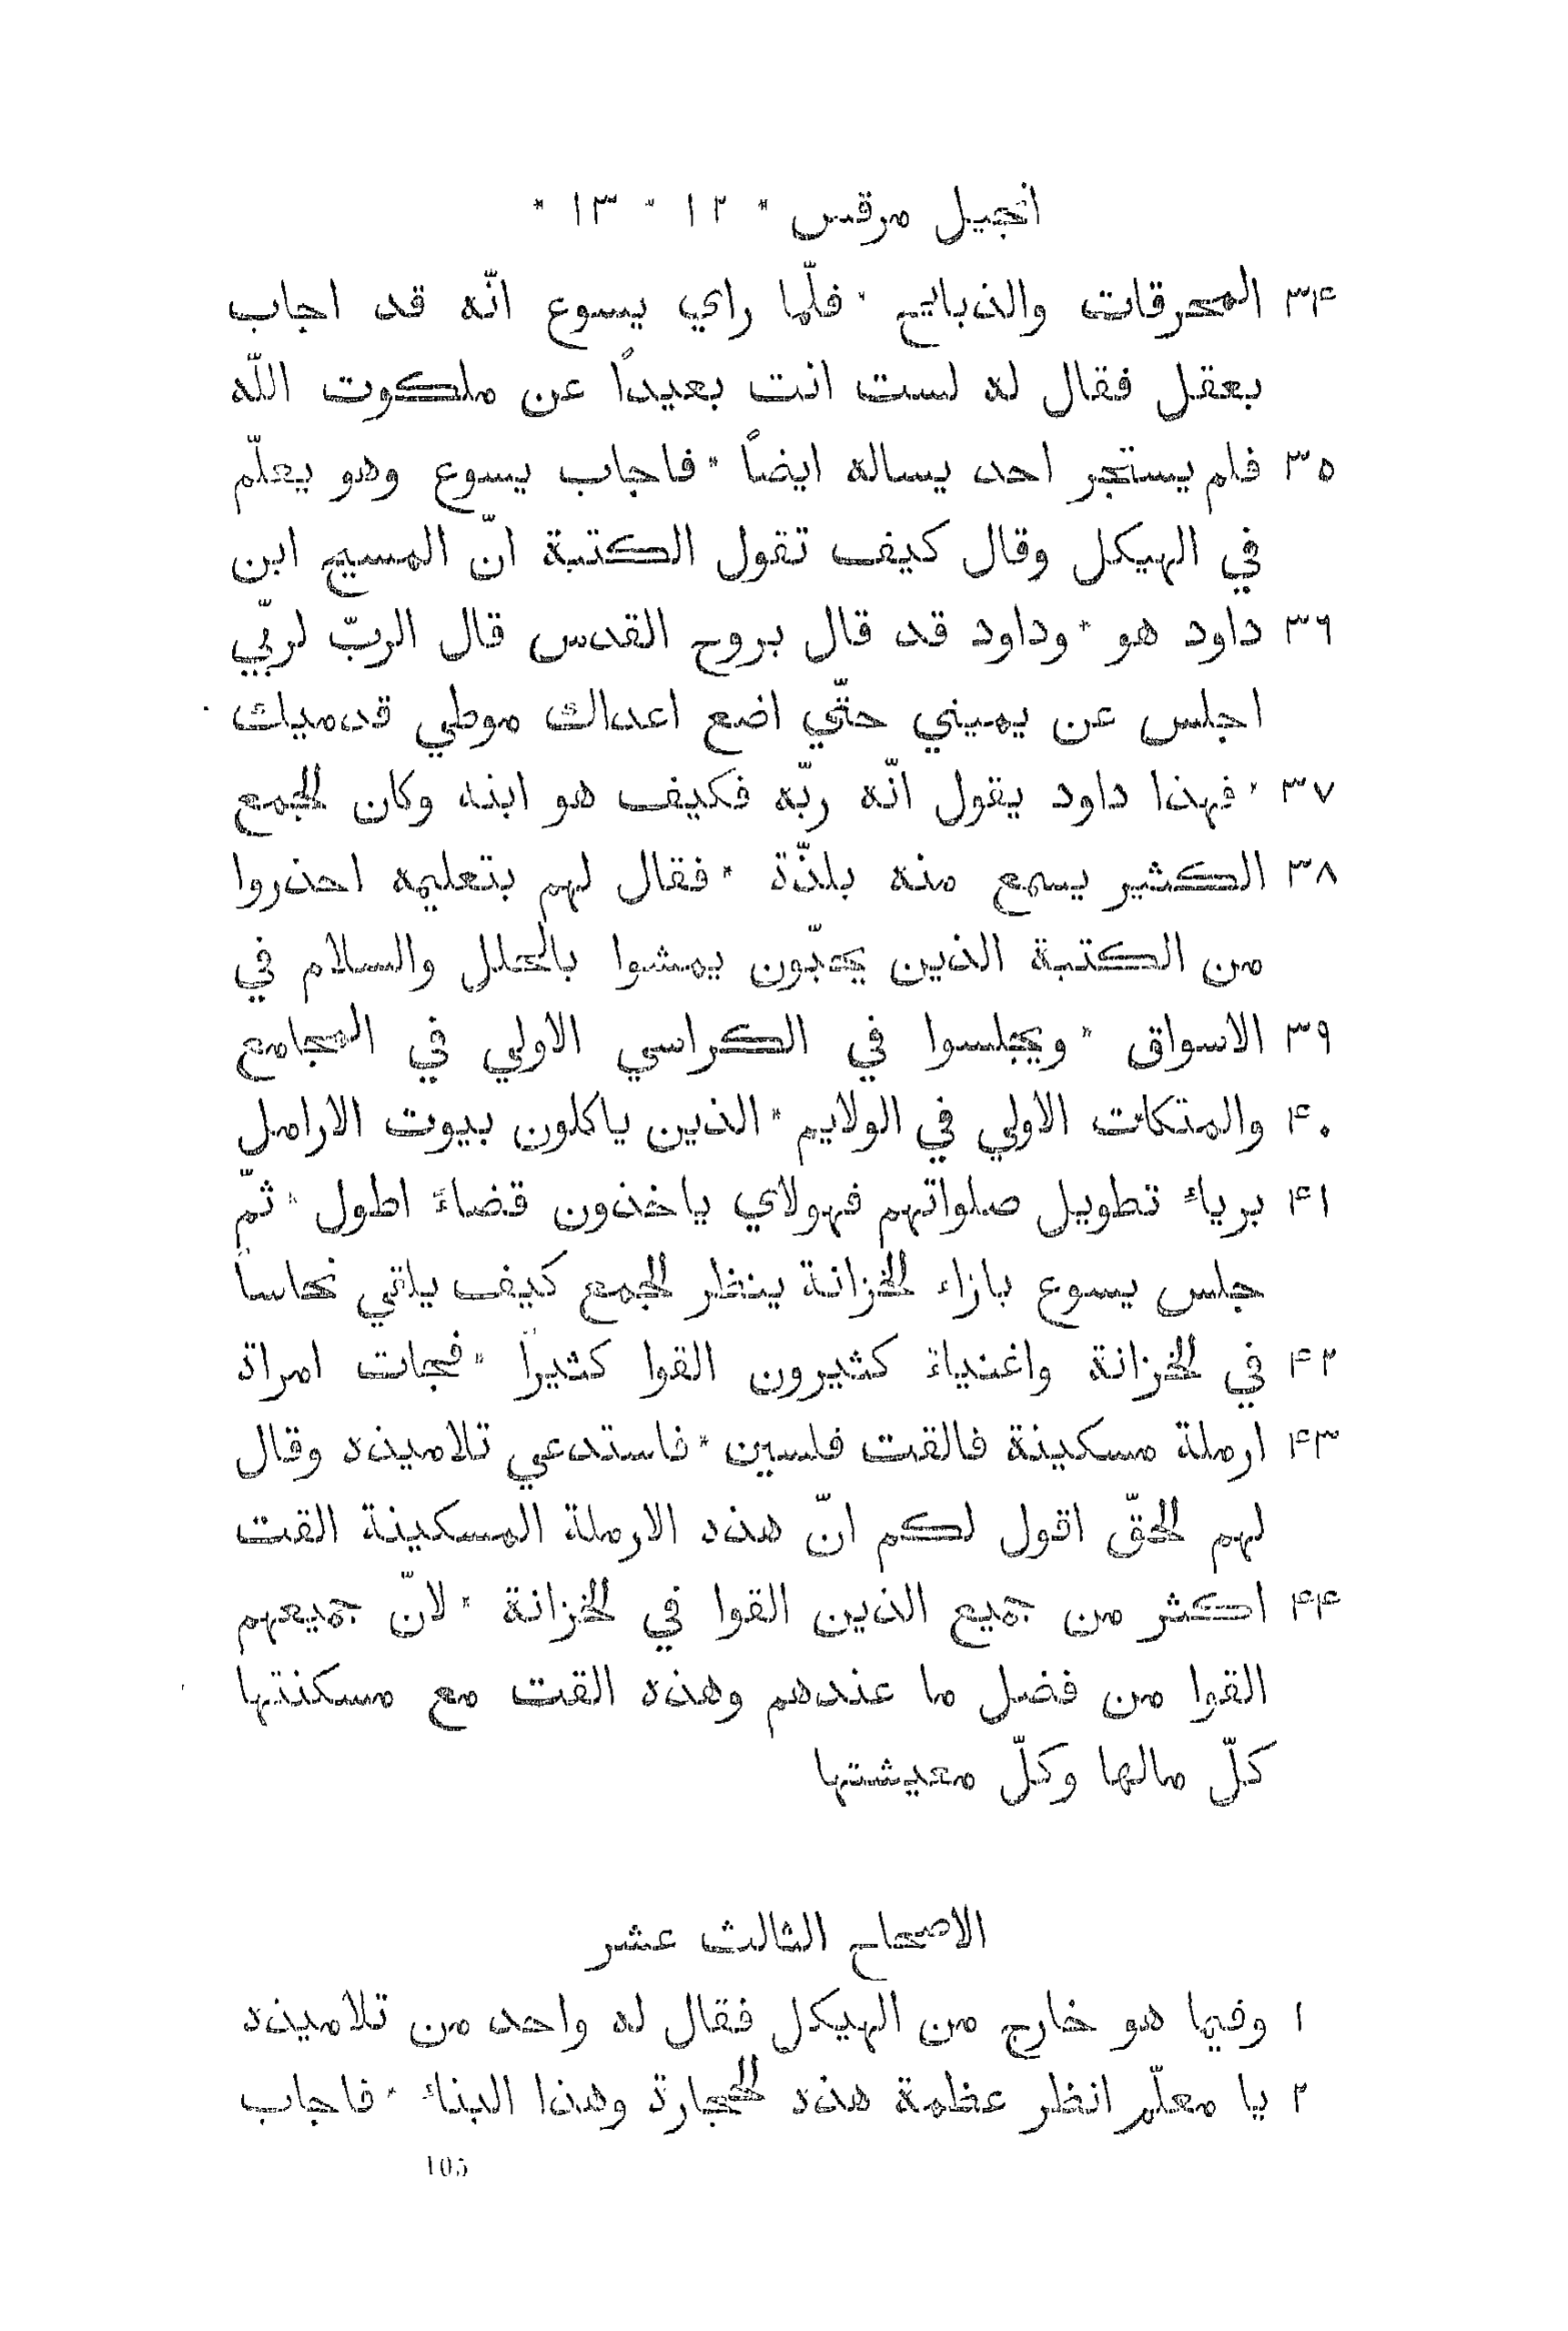 انجيل مرقس * ١٢ * ١٣ *
٣۴ المحرقات والذبايح * فلّما راي يسوع انّه قد اجاب
بعقل فقال له لست انت بعيداً عن ملكوت اللّه
٣٥ فلم يستجر احد يساله ايضاً * فاجاب يسوع وهو يعلّم
في الهيكل وقال كيف تقول الكتبة انّ المسيح ابن
٣٦ داود هو * وداود قد قال بروح القدس قال الربّ لربّي
اجلس عن يميني حتّي اضع اعداك موطي قدميك
٣٧ * فهذا داود يقول انّه ربّه فكيف هو ابنه وكان الجمع
٣٨ الكثير يسمع منه بلذّة * فقال لهم بتعليمه احذروا
من الكتبة الذين يحبّون يمشوا بالحلل والسلام في
٣٩ الاسواق * ويجلسوا في الكراسي الاولي في المجامع
۴٠ والمتكات الاولي في الولايم * الذين ياكلون بيوت الارامل
۴١ برياء تطويل صلواتهم فهولاي ياخذون قضاءً اطول * ثمّ
جلس يسوع بازاء الخزانة ينظر الجمع كيف يلقي نحاساً
۴٢ في الخزانة واغنياءٌ كثيرون القوا كثيراً * فجات امراة
۴٣ ارملة مسكينة فالقت فلسين * فاستدعي تلاميذه وقال
لهم الحقّ اقول لكم انّ هذه الارملة المسكينة القت
۴۴ اكثر من جميع الذين القوا في الخزانة * لانّ جميعهم
القوا من فضل ما عندهم وهذه القت مع مسكنتها
كلّ مالها وكلّ معيشتها
الاصحاح الثالث عشر
١ وفيما هو خارج من الهيكل فقال له واحد من تلاميذه
٢ يا معلّم انظر عظمة هذه الحجارة وهذا البناء * فاجاب
105